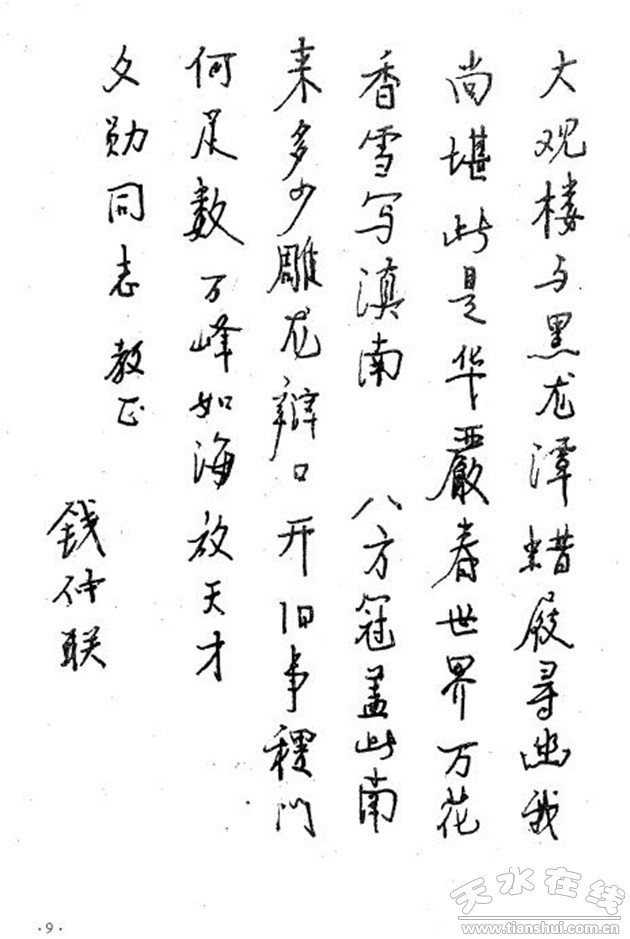 大观楼与黑龙潭蜡屐寻幽我
尚堪此是华严春世界万花
香雪写滇南　八方冠盖此南
来多少雕龙辩口开旧事稷门
何足数万峰如海放天才
文勋同志教正
钱仲联
·9·
天水在线
www.tianshui.com.cn